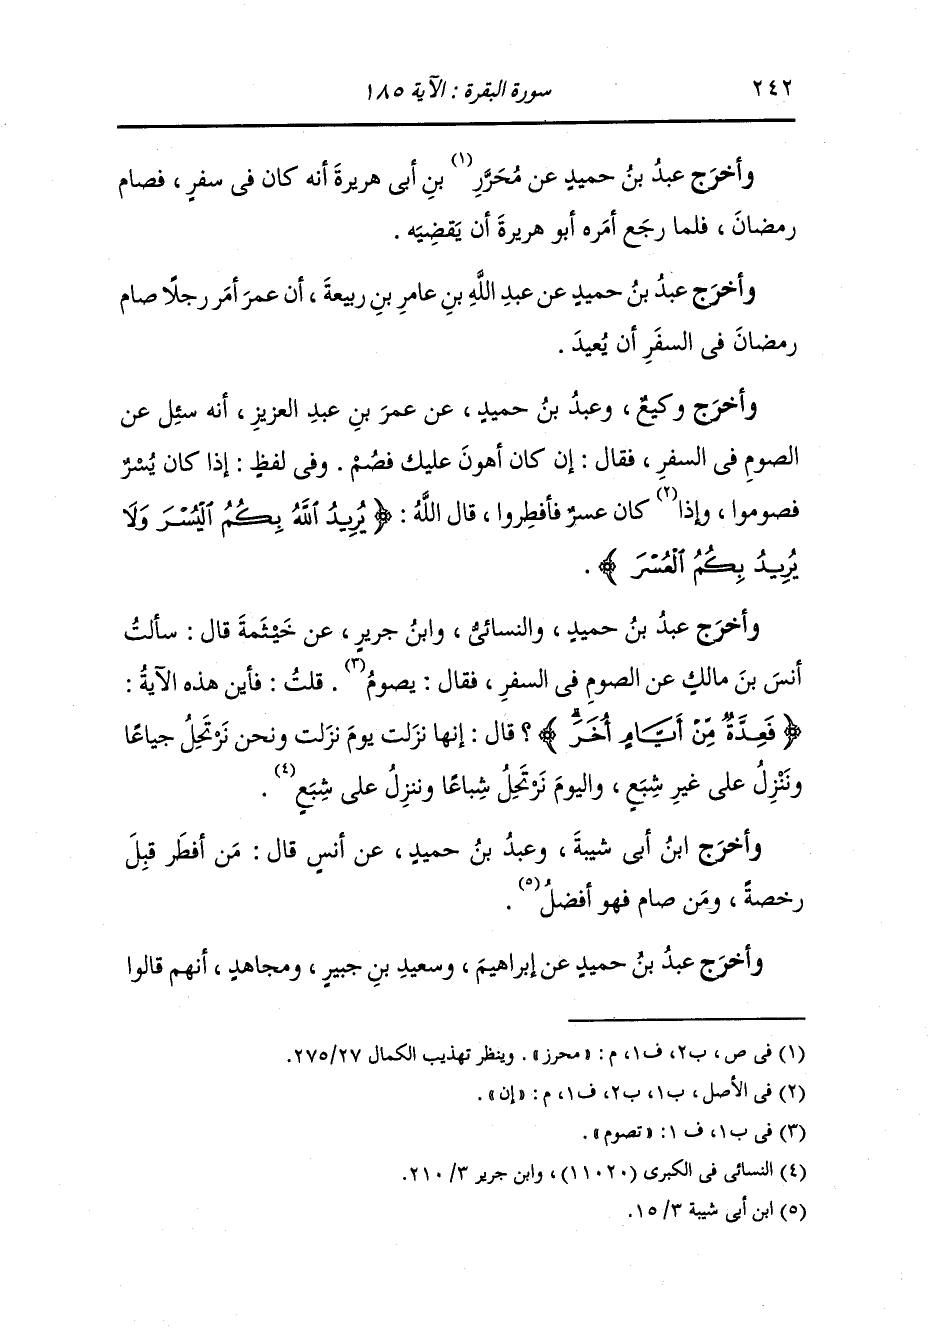 ٢٤٢ سورة البقرة : الآية ١٨٥
وأخرَج عبدُ بنُ حميدٍ عن مُحَرَّرِ(١) بنِ أبى هريرةَ أنه كان فى سفرٍ ، فصام
رمضانَ ، فلما رجَع أمَره أبو هريرةَ أن يَقضِيَه .
وأخرَج عبدُ بنُ حميدٍ عن عبدِ اللَّهِ بنِ عامرِ بنِ ربيعةَ ، أن عمرَ أمَر رجلًا صام
رمضانَ فى السفَرِ أن يُعيدَ .
وأخرَج وكيعٌ ، وعبدُ بنُ حميدٍ ، عن عمرَ بنِ عبدِ العزيزِ ، أنه سئِل عن
الصومِ فى السفرِ ، فقال : إن كان أهونَ عليك فصُمْ . وفى لفظٍ : إذا كان يُسْرٌ
فصوموا ، وإذا(٢) كان عسرٌ فأفطِروا ، قال اللَّهُ : ﴿ يُرِيدُ ٱللَّهُ بِكُمُ ٱلْيُسْرَ وَلَا
يُرِيدُ بِكُمُ ٱلْعُسْرَ ﴾ .
وأخرَج عبدُ بنُ حميدٍ ، والنسائىُّ ، وابنُ جريرٍ ، عن خَيْثَمةَ قال : سألتُ
أنسَ بنَ مالكٍ عن الصومِ فى السفرِ ، فقال : يصومُ(٣) . قلتُ : فأين هذه الآيةُ :
﴿ فَعِدَّةٌ مِّنْ أَيَّامٍ أُخَرَۗ ﴾ ؟ قال : إنها نزَلت يومَ نزَلت ونحن نَرْتَحِلُ جياعًا
ونَنْزِلُ على غيرِ شِبَعٍ ، واليومَ نَرْتَحِلُ شِباعًا وننزِلُ على شِبَعٍ(٤) .
وأخرَج ابنُ أبى شيبةَ ، وعبدُ بنُ حميدٍ ، عن أنسٍ قال : مَن أفطَر قبِلَ
رخصةً ، ومَن صام فهو أفضلُ(٥) .
وأخرَج عبدُ بنُ حميدٍ عن إبراهيمَ ، وسعيدِ بنِ جبيرٍ ، ومجاهدٍ ، أنهم قالوا
(١) فى ص ، ب٢، ف١، م : «محرز» . وينظر تهذيب الكمال ٢٧/ ٢٧٥.
(٢) فى الأصل ، ب١، ب٢، ف١، م : «إن» .
(٣) فى ب١، ف ١: «تصوم» .
(٤) النسائى فى الكبرى (١١٠٢٠) ، وابن جرير ٣/ ٢١٠.
(٥) ابن أبى شيبة ٣/ ١٥.